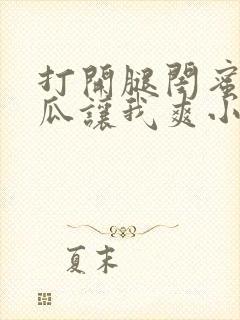 打開腿閉蜜
瓜讓我爽小
夏末